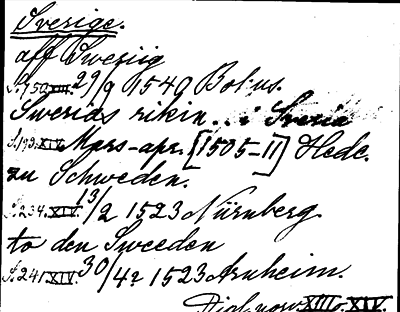 Sverige.
aff Sweriig
S. 750 XIII. 29/9 1540 Bohus.
Sweriäs rikin.. i Sveria
S. 193. XIV. Mars-apr. [1505-11] Hede.
zu Schweden.
S. 234. XIV. 13/2 1523 Nürnberg.
to den Sweeden
S. 241 XIV. 30/4? 1523 Arnheim.
Dipl. norv. XIII. XIV.